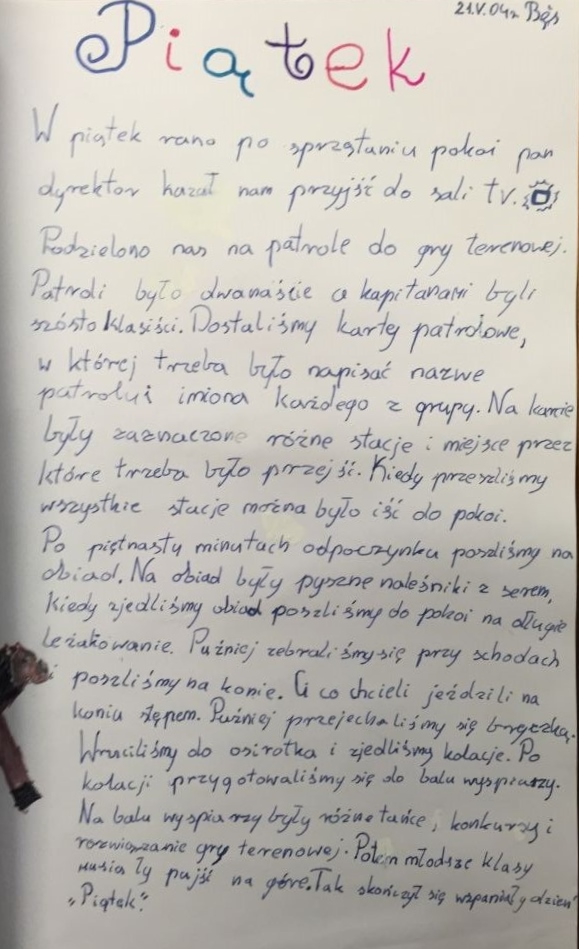 21.V.04r Bąs
Piątek
W piątek rano po sprzątaniu pokoi pan
dyrektor kazał nam przyjść do sali tv.
Podzielono nas na patrole do gry terenowej.
Patroli było dwanaście a kapitanami byli
szósto klasiści. Dostaliśmy kartę patrolowe,
w której trzeba było napisać nazwe
patrolu i imiona każdego z grupy. Na karcie
były zaznaczone różne stacje i miejsce przez
które trzeba było przejść. Kiedy przeszliśmy
wszystkie stacje można było iść do pokoi.
Po piętnastu minutach odpoczynku poszliśmy na
obiad. Na obiad były pyszne naleśniki z serem,
Kiedy zjedliśmy obiad poszliśmy do pokoi na długie
leżakowanie. Puźniej zebraliśmy się przy schodach
i poszliśmy na konie. Ci co chcieli jeździli na
koniu stępem. Puźniej przejechaliśmy się bryczką.
Wruciliśmy do osirotka i zjedliśmy kolacje. Po
kolacji przygotowaliśmy się do balu wyspiarzy.
Na balu wyspiarzy były różne tańce, konkursy i
rozwiązanie gry terenowej. Potem młodsze klasy
musiały pujść na góre. Tak skończył się wspaniały dzień
"Piątek".